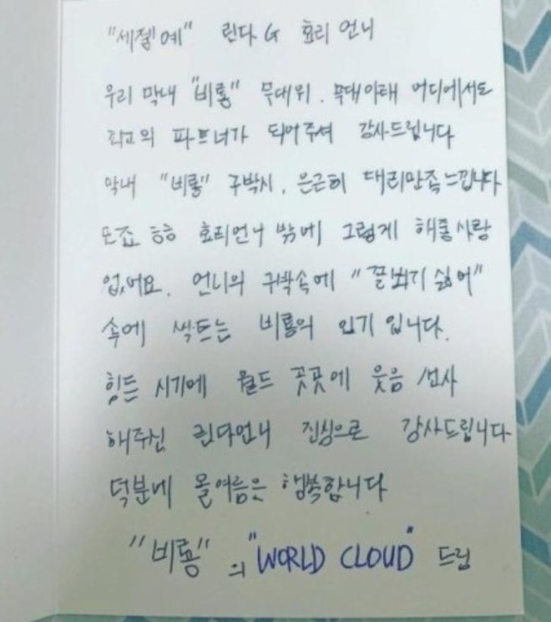 "세젤예" 린다G 효리 언니
우리 막내 "비룡" 무대위, 무대아래 어디에서도
최고의 파트너가 되어주셔 감사드립니다
막내 "비룡" 구박시, 은근히 대리만족느낍니다
또죠 ㅎㅎ 효리언니 밖에 그렇게 해줄사람
없어요. 언니의 구박속에 "꼴뵈기 싫어"
속에 싹트는 비룡의 인기 입니다.
힘든 시기에 월드 곳곳에 웃음 선사
해주신 린다언니 진심으로 감사드립니다
덕분에 올여름은 행복합니다
"비룡" 의 "WORLD CLOUD" 드림